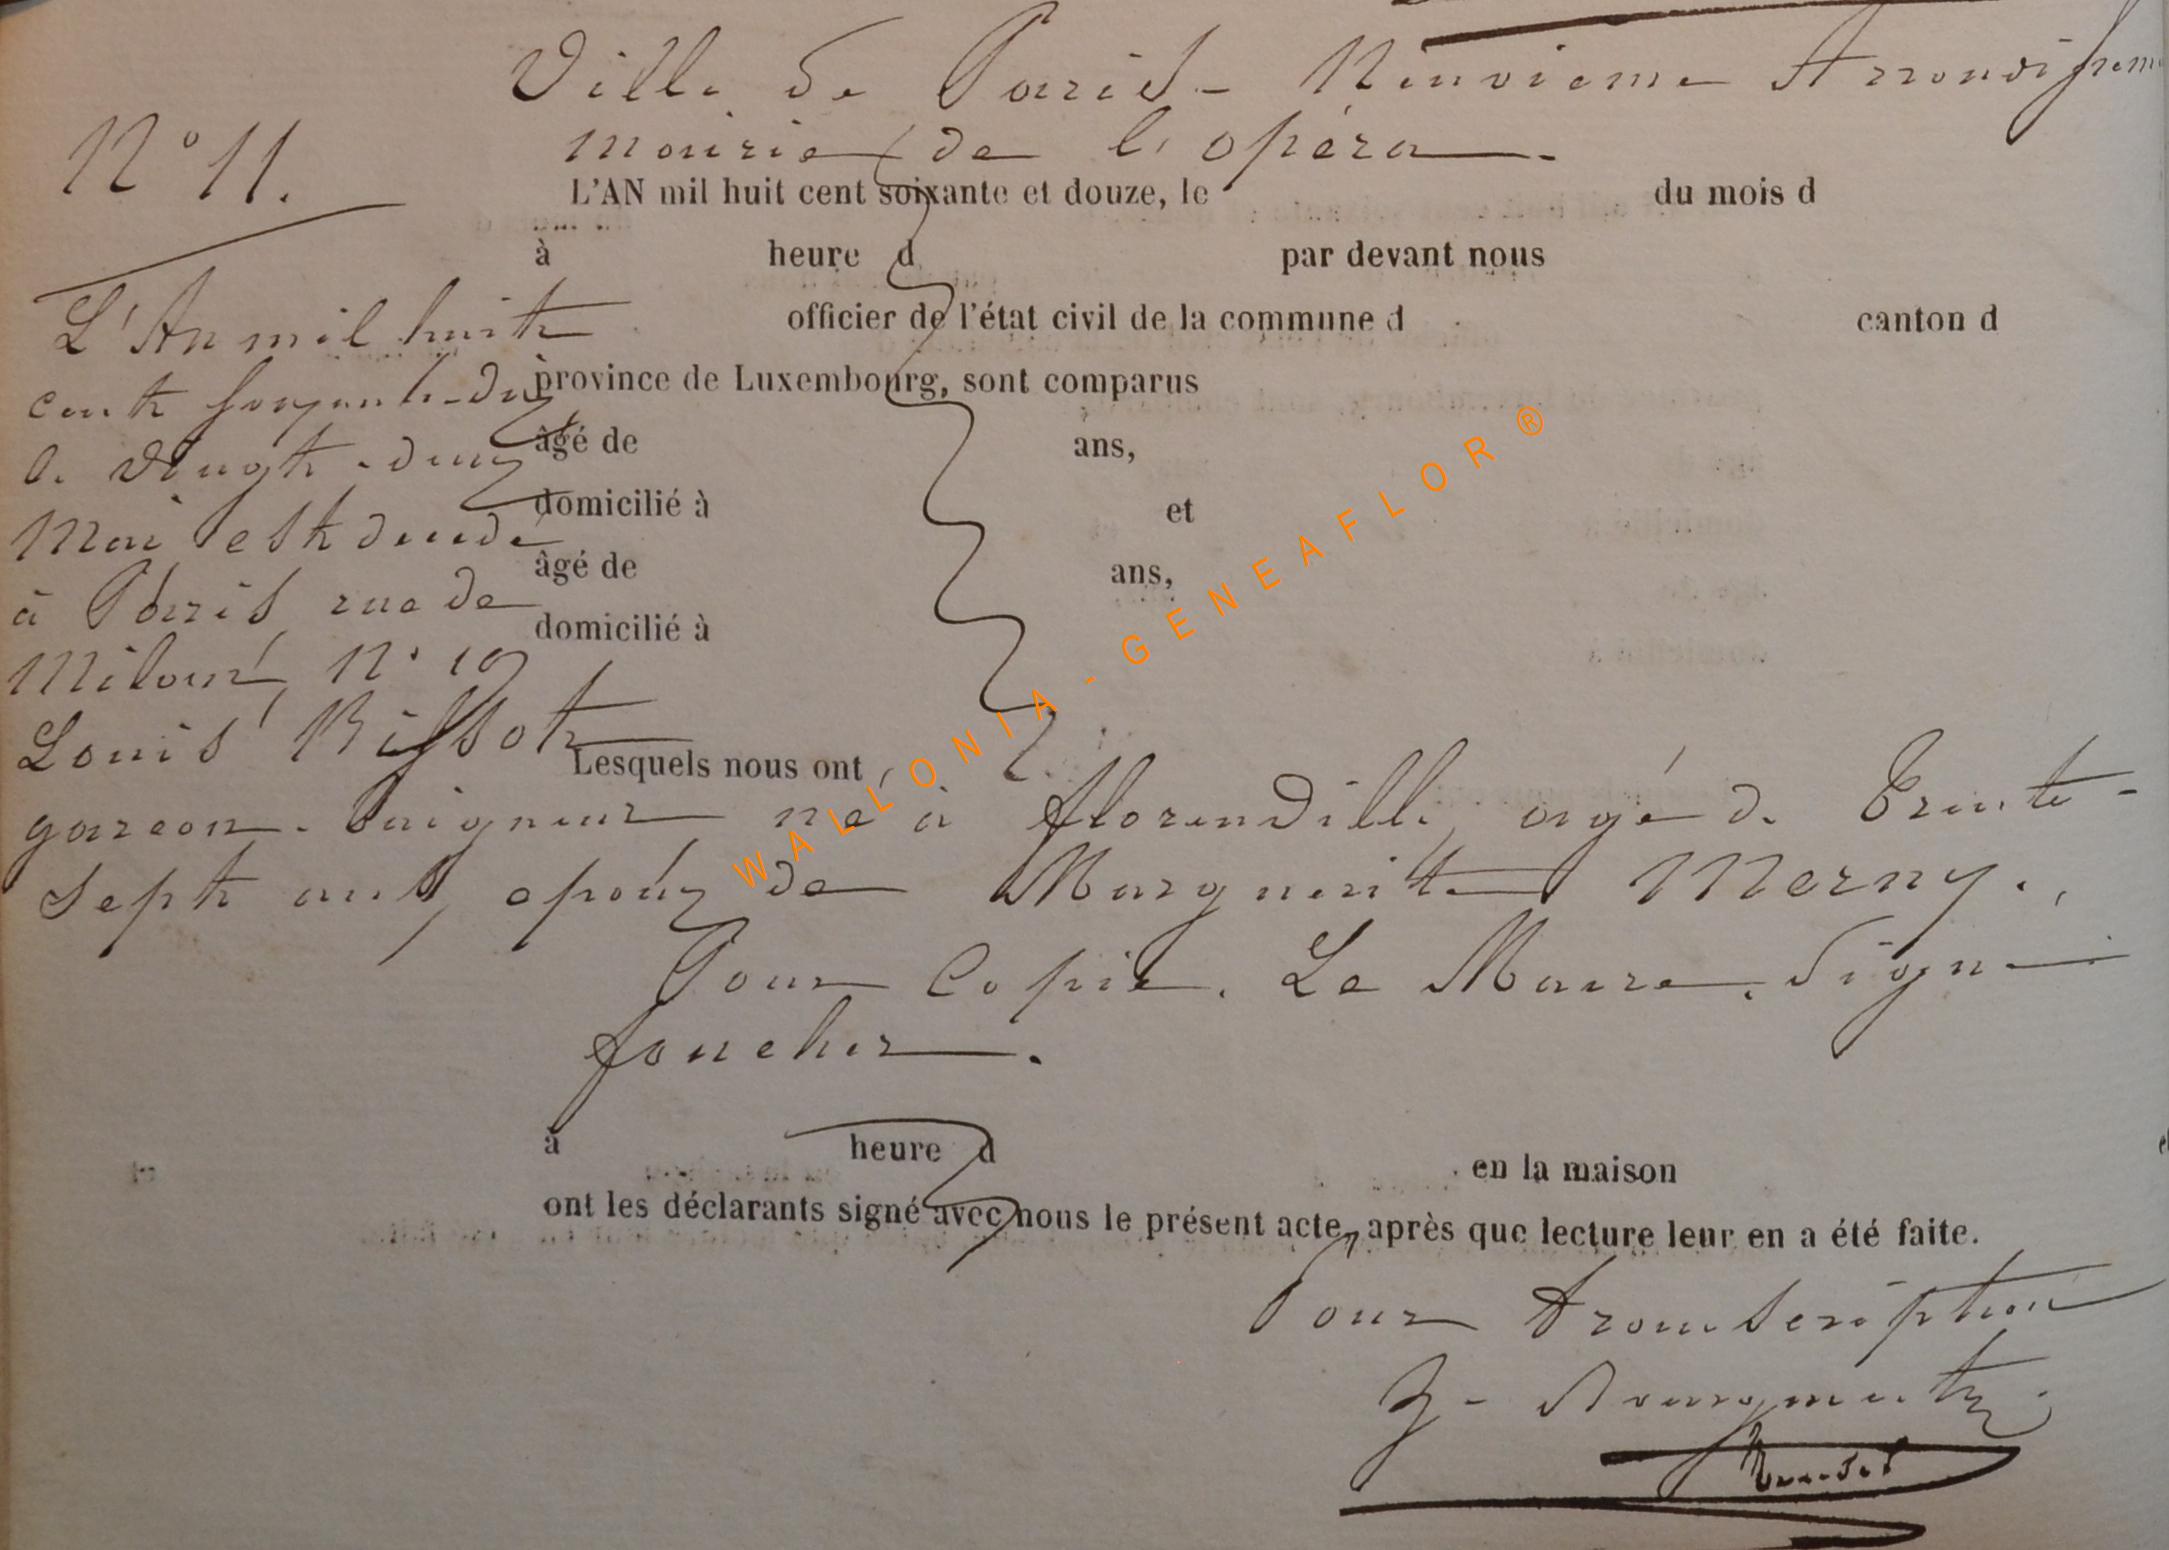 Ville de Paris - Neuvieme Arrondissem
mairie de l'opéra.
N° 11.
L'AN mil huit cent soixante et douze, le du mois d
à heure d par devant nous
officier de l'état civil de la commune d canton d
province de Luxembourg, sont comparus
âgé de ans,
domicilié à et
âgé de ans,
domicilié à
L'An mil huit
cent soixante-dix
le Vingt-deux
Mai est décédé
à Paris rue de
Milan, N° 19
Louis Bissot
Lesquels nous ont
garçon baigneur né à florenville agé de Trente-
Sept ans, epoux de Marguerite Merny.
Pour Copie. Le Maire. Signé
foucher.
à heure d en la maison
ont les déclarants signé avec nous le présent acte, après que lecture leur en a été faite.
Pour Transcription
WALLONIA - GENEAFLOR ®